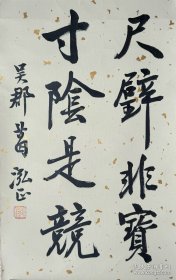 尺璧非寶
寸陰是競
吳郡
泓正